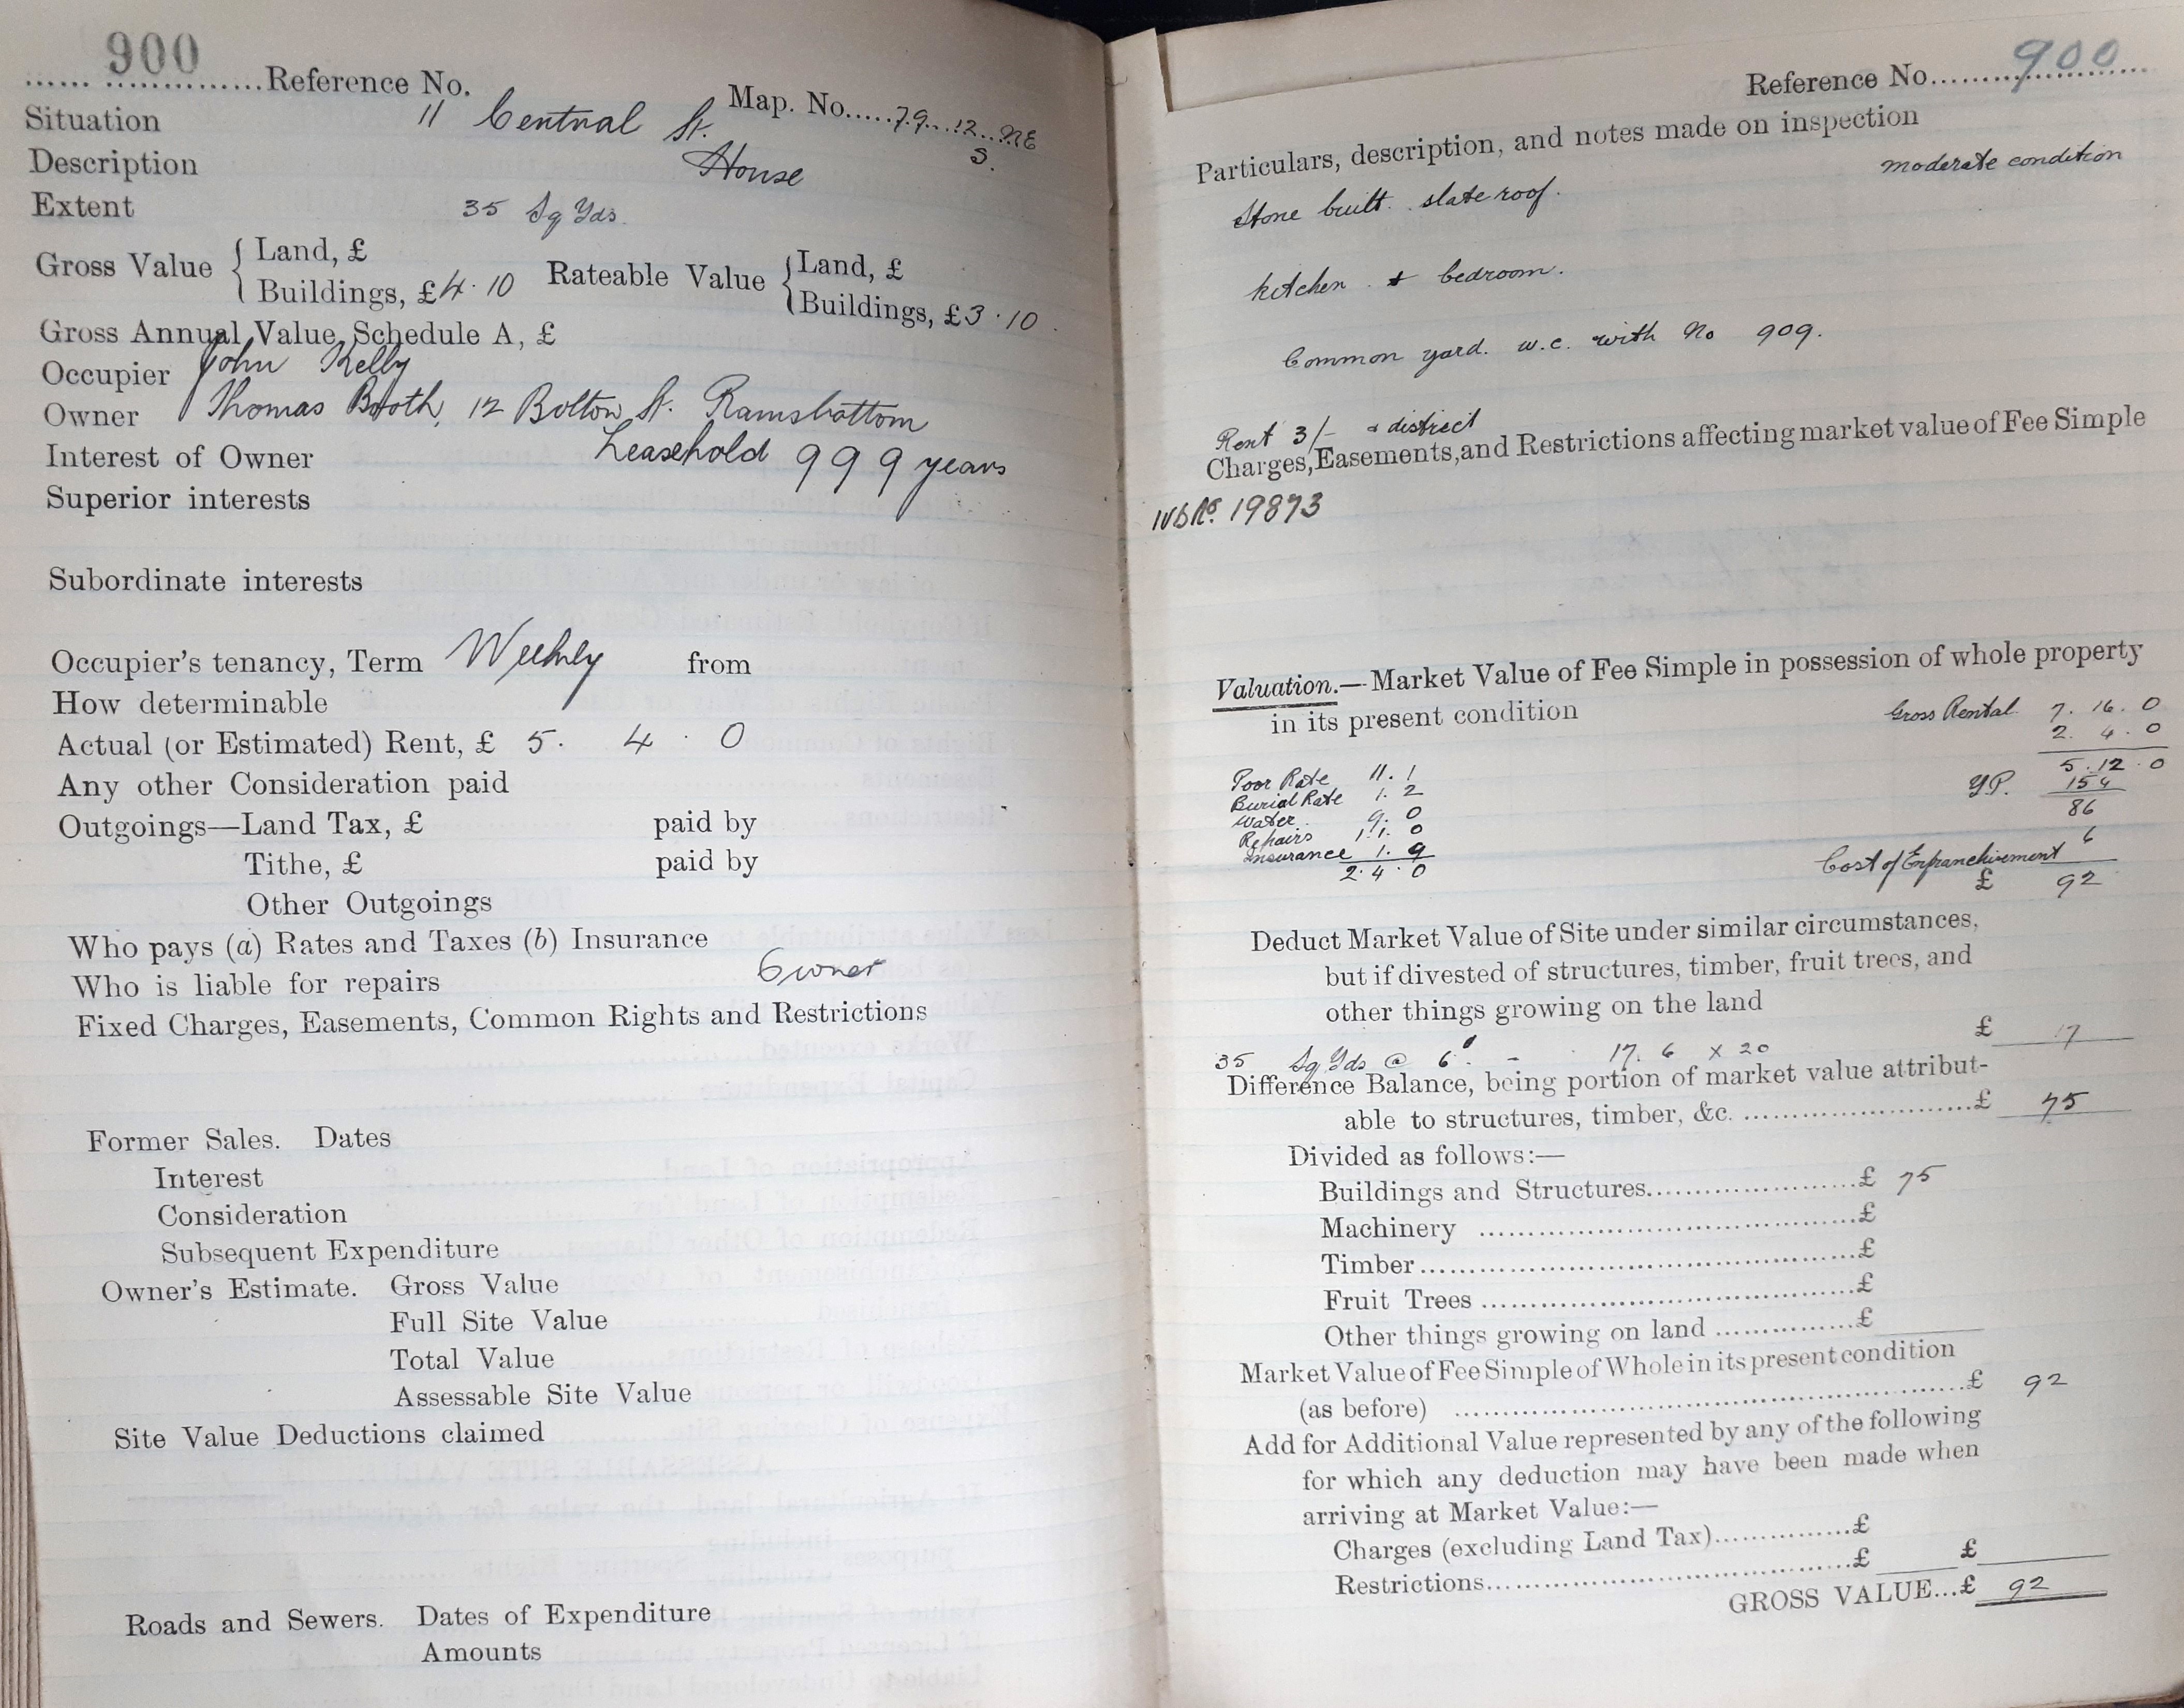 900
...... ..............Reference No.
Map. No.....79...12...NE
S.
Situation 11 Central St.
Description House
Extent 35 Sq Yds.
Gross Value { Land, £
Buildings, £4.10
Rateable Value { Land, £
Buildings, £3.10.
Gross Annual Value, Schedule A, £
Occupier John Kelly
Owner Thomas Booth, 12 Bolton St. Ramsbottom
Interest of Owner Leasehold 999 years
Superior interests
Subordinate interests
Occupier's tenancy, Term Weekly from
How determinable
Actual (or Estimated) Rent, £ 5. 4. 0
Any other Consideration paid
Outgoings—Land Tax, £ paid by
Tithe, £ paid by
Other Outgoings
Who pays (a) Rates and Taxes (b) Insurance
Who is liable for repairs Owner
Fixed Charges, Easements, Common Rights and Restrictions
Former Sales. Dates
Interest
Consideration
Subsequent Expenditure
Owner's Estimate. Gross Value
Full Site Value
Total Value
Assessable Site Value
Site Value Deductions claimed
Roads and Sewers. Dates of Expenditure
Amounts
Reference No. 900
Particulars, description, and notes made on inspection
moderate condition
Stone built. slate roof.
kitchen & bedroom.
Common yard. w.c. with No 909.
Rent 3/- & district
Charges, Easements, and Restrictions affecting market value of Fee Simple
19873
Valuation.—Market Value of Fee Simple in possession of whole property
in its present condition
Gross Rental 7. 16. 0
2. 4. 0
5. 12. 0
YP. 15¼
86
Cost of Enfranchisement 6
£ 92
Poor Rate 11. 1
Burial Rate 1. 2
Water 9. 0
Repairs 1. 1. 0
Insurance 1. 9
2. 4. 0
Deduct Market Value of Site under similar circumstances,
but if divested of structures, timber, fruit trees, and
other things growing on the land
£ 17
35 Sq Yds @ 6d - 17. 6 x 20
Difference Balance, being portion of market value attribut-
able to structures, timber, &c. ..............................£ 75
Divided as follows:—
Buildings and Structures.........................£ 75
Machinery .............................................£
Timber....................................................£
Fruit Trees .............................................£
Other things growing on land ................£
Market Value of Fee Simple of Whole in its present condition
(as before) ......................................................£ 92
Add for Additional Value represented by any of the following
for which any deduction may have been made when
arriving at Market Value:—
Charges (excluding Land Tax)................£
Restrictions...........................................£ £
GROSS VALUE...£ 92